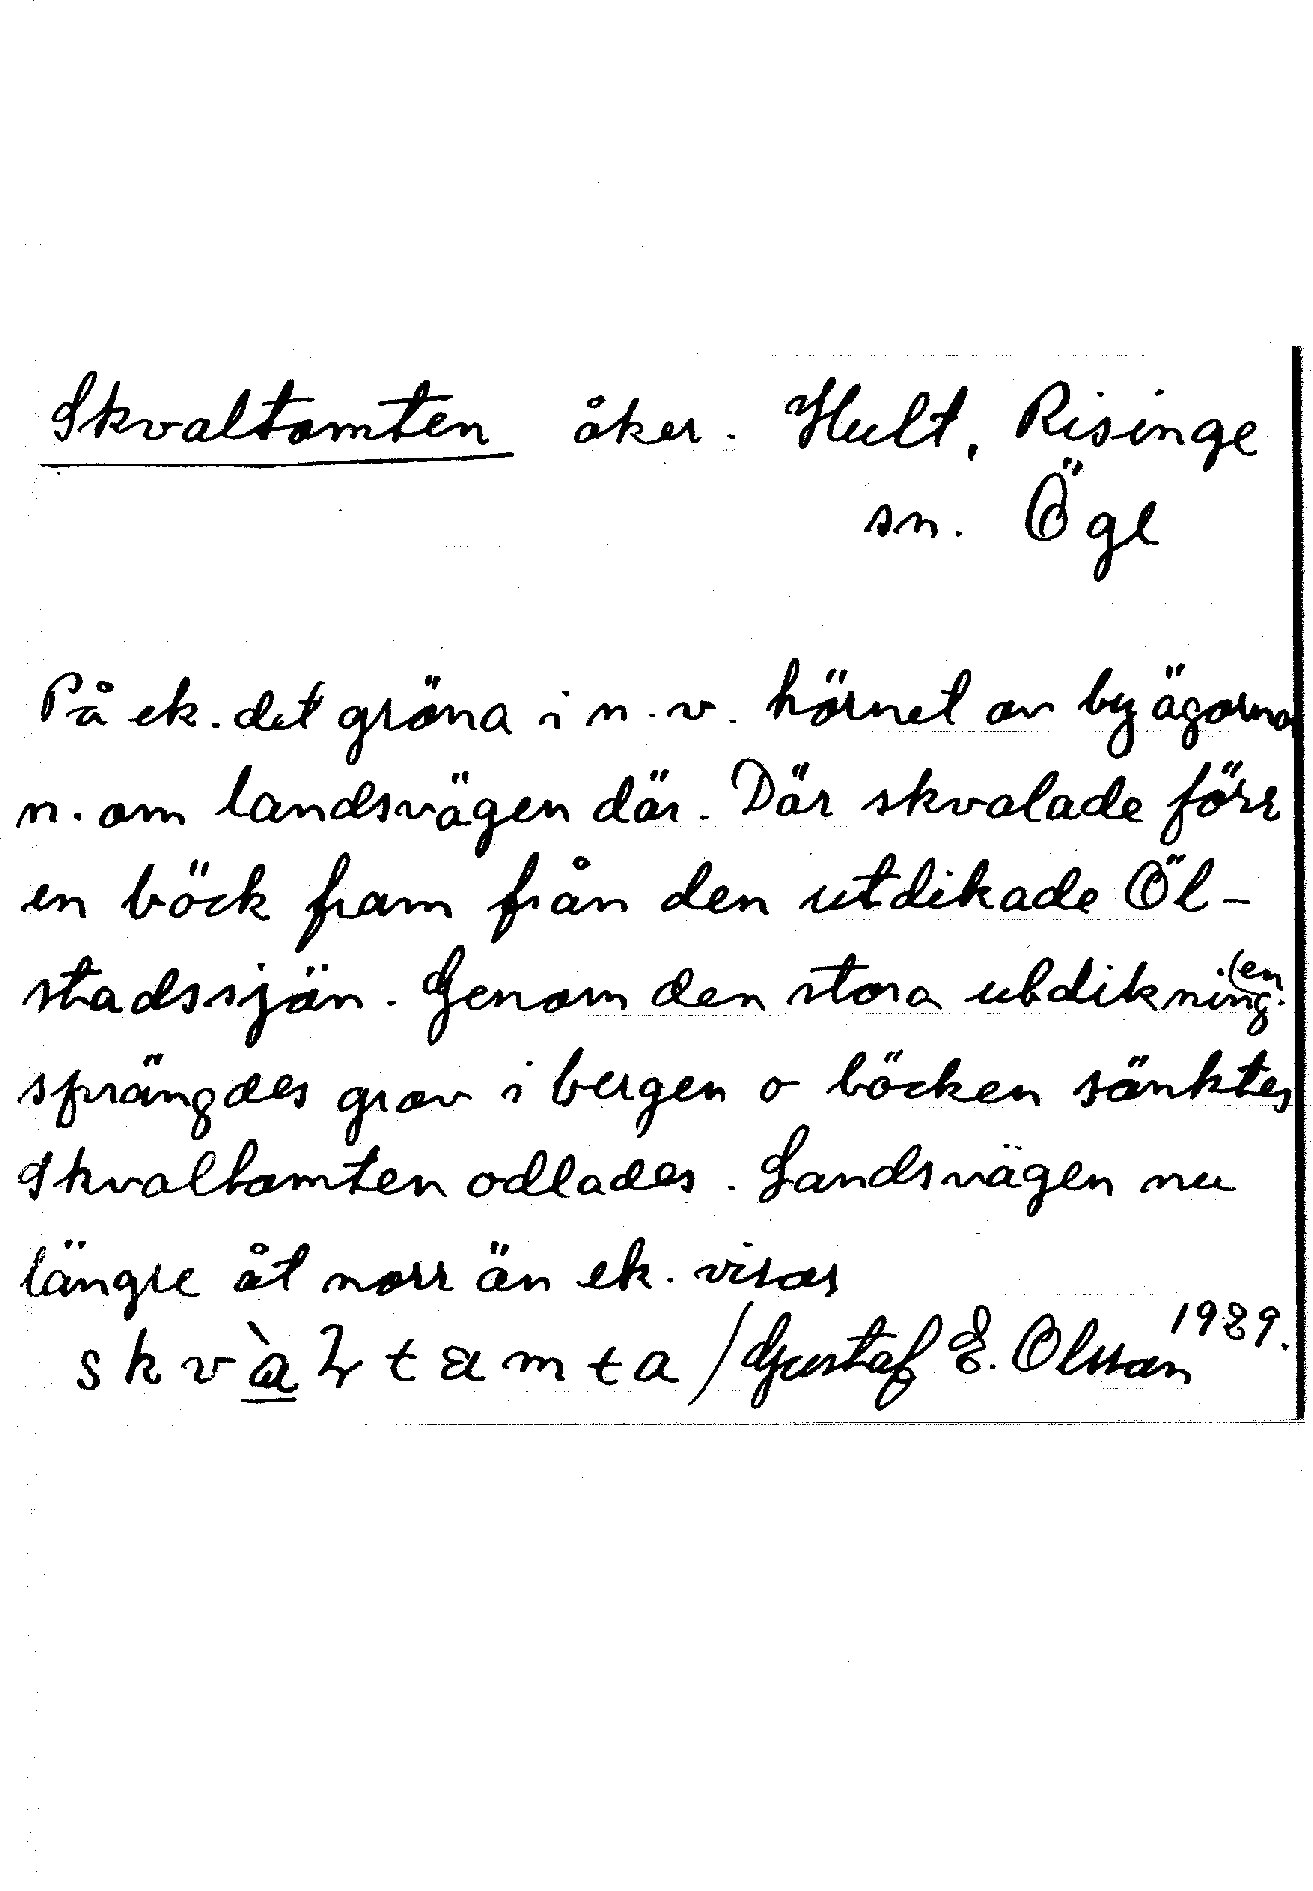 Skvaltomten åker. Hult, Risinge
sn. Ögl
På ek. det gröna i n.v. hörnet av byägorna
n. om landsvägen där. Där skvalade förr
en bäck fram från den utdikade Öl-
stadssjön. Genom den stora utdikningen
sprängdes grav i bergen o bäcken sänktes
Skvaltomten odlades. Landsvägen nu
längre åt norr än ek. visar
/Gustaf E. Olsson 1989.